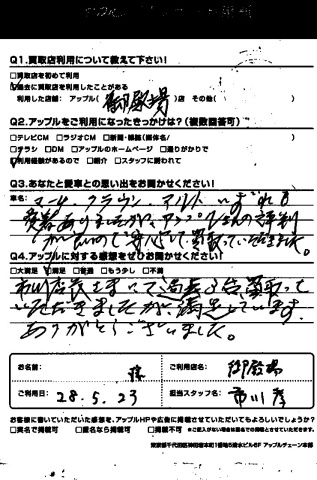 Q1.買取店利用について教えて下さい!
□買取店を初めて利用
☑過去に買取店を利用したことがある
利用した店舗: アップル(御殿場)店 その他( )
Q2.アップルをご利用になったきっかけは?(複数回答可)
□テレビCM □ラジオCM □新聞・雑誌(媒体名/ )
□チラシ □DM □アップルのホームページ □通りがかりで
☑利用経験があるので □紹介 □スタッフに誘われて
Q3.あなたと愛車との思い出をお聞かせください!
車名: マーチ、クラウン、アルト、いずれも
愛着ありましたが、アップルさんの評判
が良いので安心して買取っていただきました。
Q4.アップルに対する感想をぜひお聞かせください!
□大満足 ☑満足 □普通 □もう少し □不満
市川店長さまにて過去3台買取って
いただきましたが、満足しています。
ありがとうございました。
お名前: 様
ご利用店名: 御殿場
ご利用日: 28.5.23
担当スタッフ名: 市川彦
お客様に書いていただいた感想を、アップルHPや広告に掲載させていただいてもよろしいでしょうか?
□実名で掲載可 □匿名なら掲載可 □掲載不可 ※ご記入がない場合は匿名での掲載とさせていただきます。
東京都千代田区神田岩本町1番地5清水ビル6F アップルチェーン本部